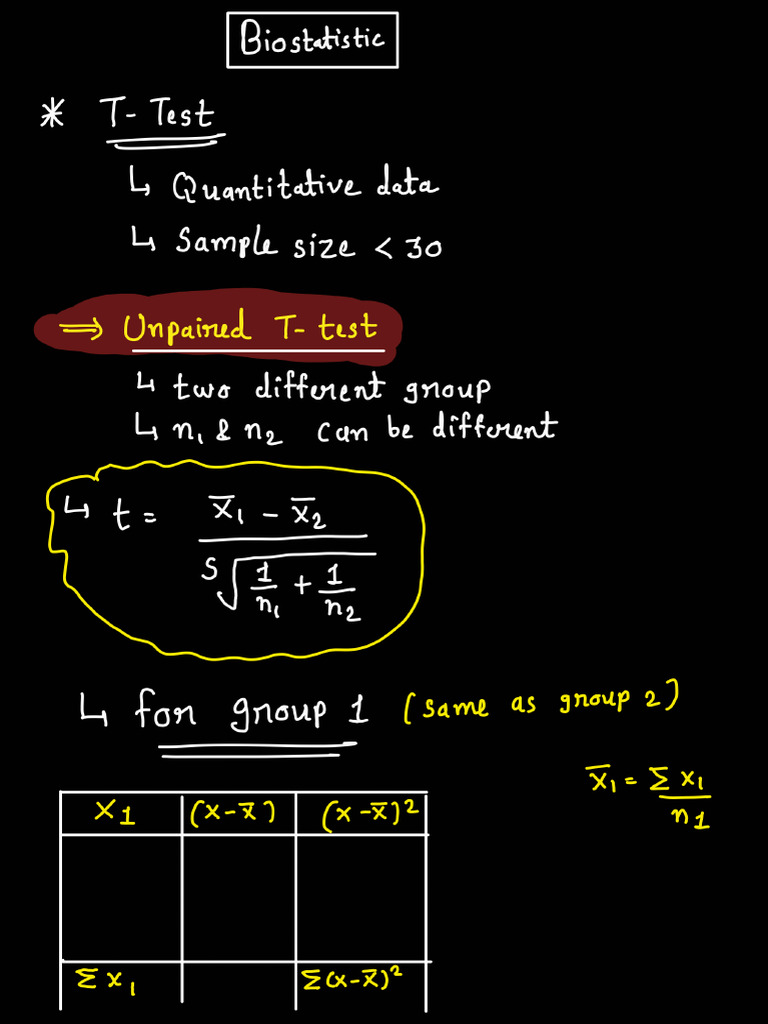 Biostatistic
* T-Test
↳ Quantitative data
↳ Sample size < 30
⇒ Unpaired T-test
↳ two different group
↳ n₁ & n₂ can be different
↳ t = (x̄₁ - x̄₂) / (S√(1/n₁ + 1/n₂))
↳ for group 1 (same as group 2)
x̄₁ = Σx₁ / n1
X1 | (x-x̄) | (x-x̄)²
Σx₁ | | Σ(x-x̄)²